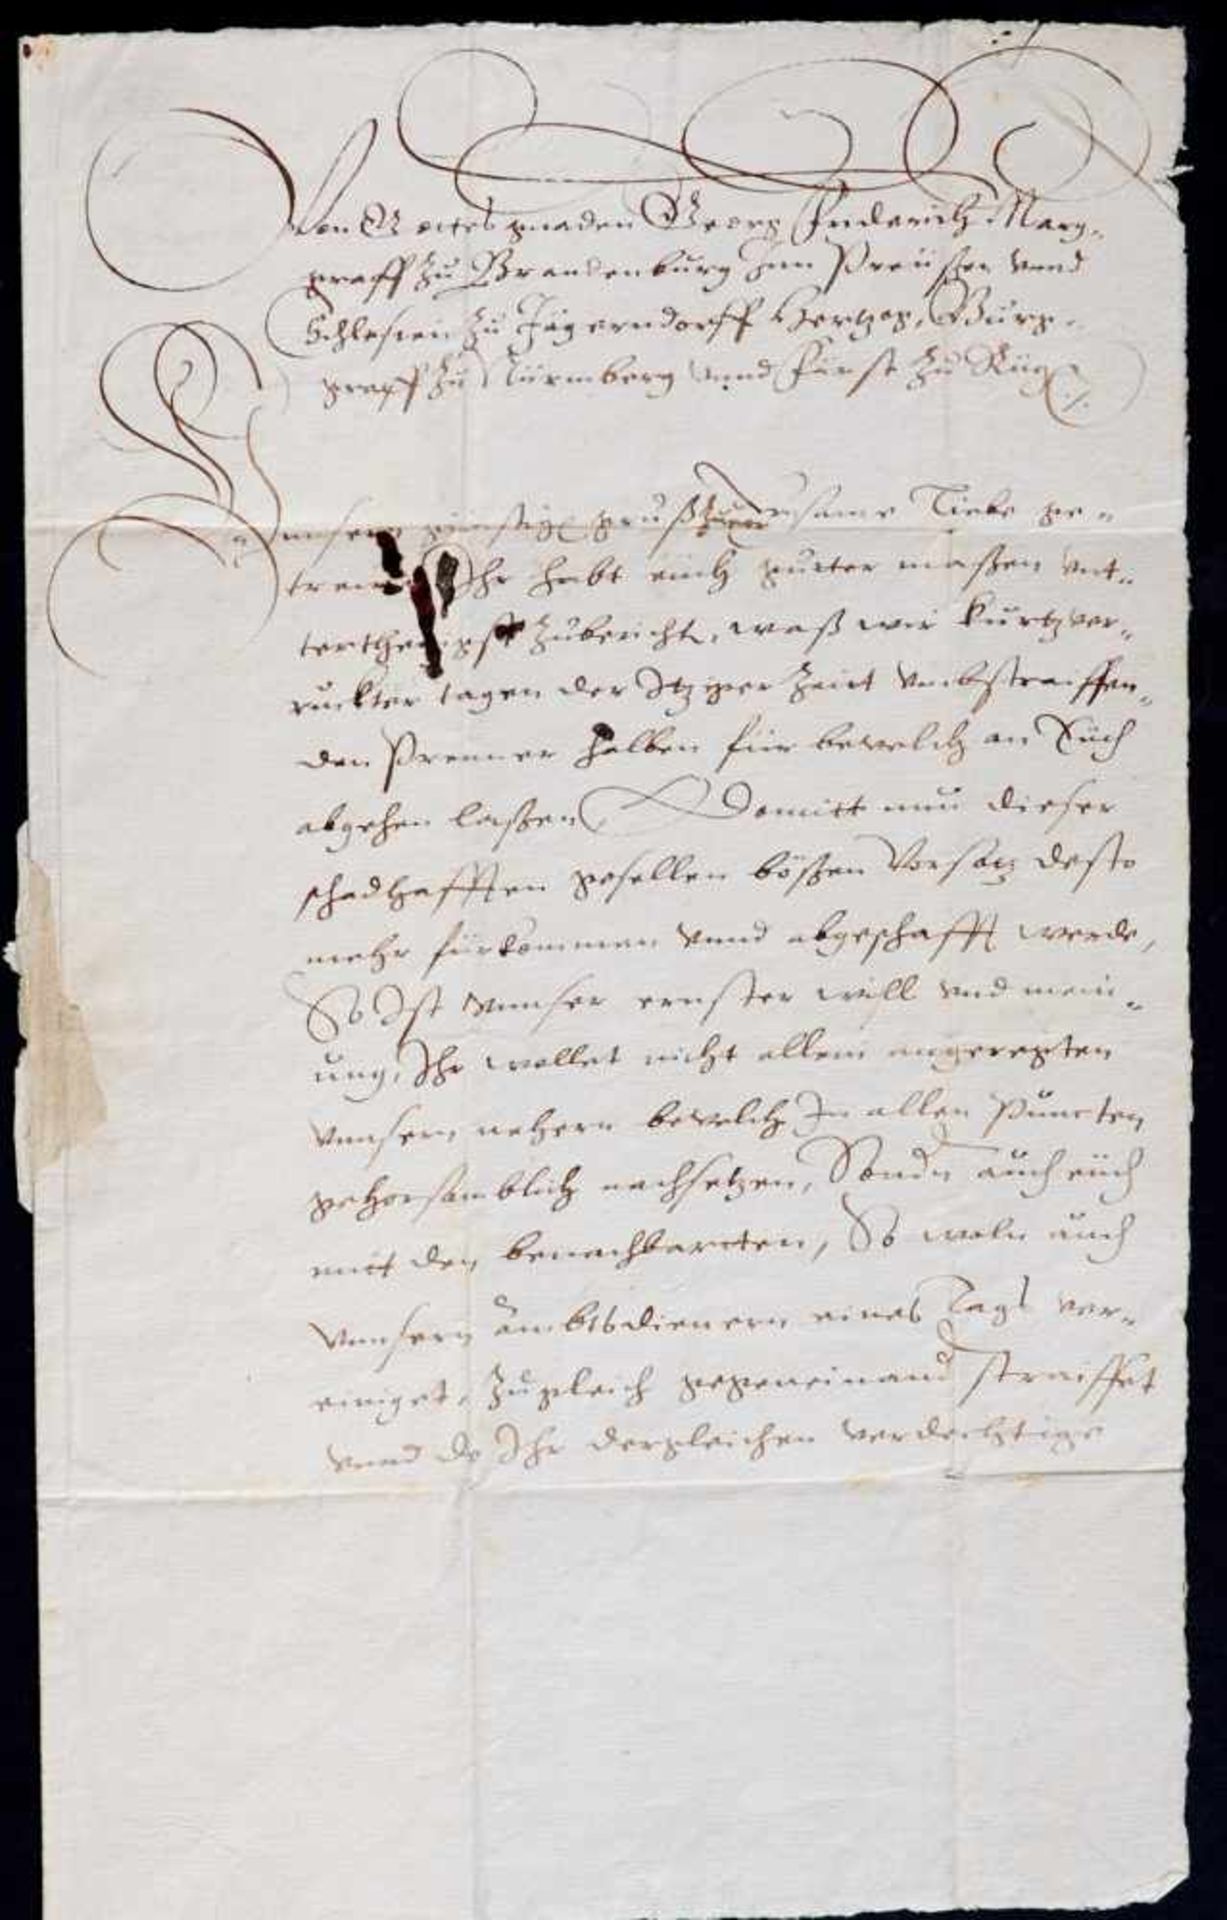 Von Gottes gnaden Georg Friderich Marg-
graff zu Brandenburg Inn Preüßen vnnd
Schlesien zu Jägerndorff Hertzog, Burg-
graff zu Nürmberg vnnd Fürst zu Rüg
Vnsern günstig grus zuvor Liebe ge-
treue Ihr habt eüch gutter maßen vnt-
terthenigst zubericht, waß wir kurtz ver-
ruckter tagen der Itziger Zeit vmbstraiffen-
den Prenner halben für bevelch an Eüch
abgehen laßen Domitt nun dieser
schadhafften gesellen bößen Vorsatz desto
mehr fürkommen vnnd abgeschafft werde,
So Ist vnnser ernster will vnd mein-
ung, Ihr wollet nicht allein angeregten
vnnsern nehern bevelch In allen Puncten
gehorsamblich nachsetzen, Sondn auch eüch
mit den benachbartten, So woln auch
vnnsern ambtsdienern eines Tags ver-
einiget, zugleich gegeneinand straiffet
vnnd do Ihr dergleichen verdechtige